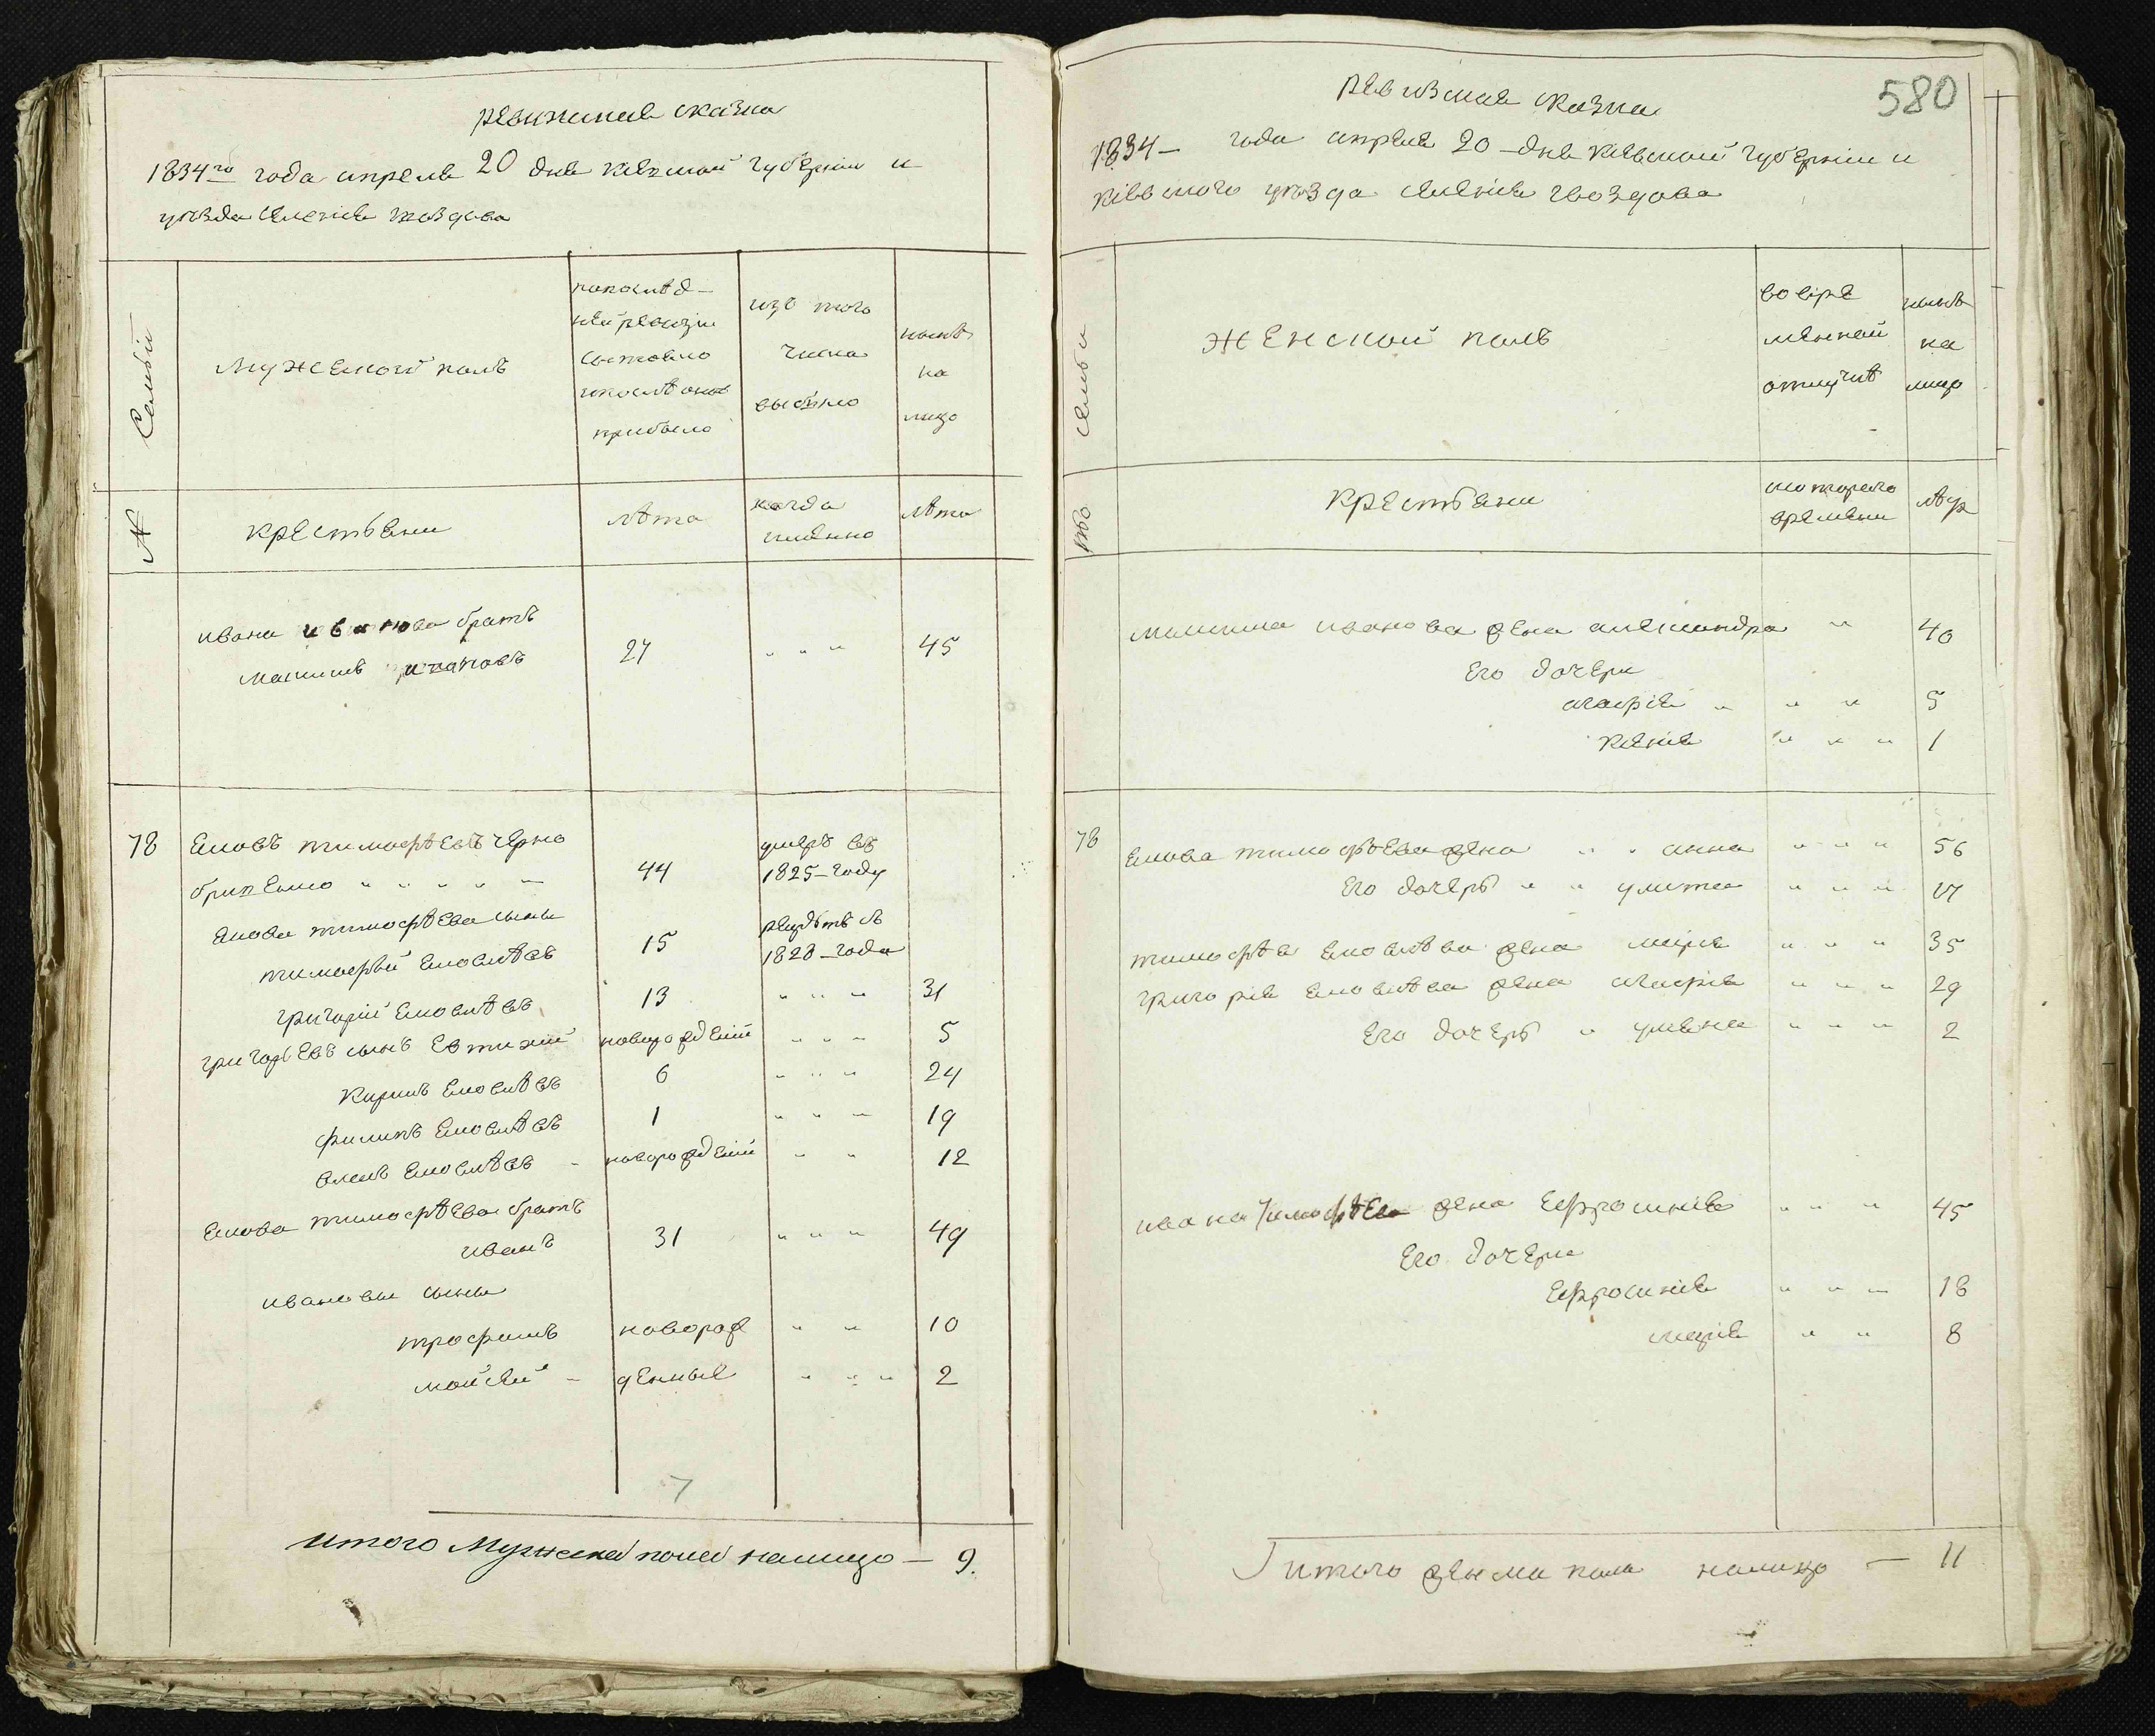 ревизская сказка
1834го года апреля 20 дня киевской губернии и
уезда селения гвоздова
№ Семьи
Мужеской полъ
по послѣд-
ней ревизіи
состояло
и послѣ оной
прибыло
изъ того
числа
выбыло
нынѣ
на
лицо
крестьяни
лѣта
когда
имѣнно
лѣта
ивана иванова братъ
максимъ ивановъ 27 " " " 45
78 Яковъ тимофѣевъ черно
бривенко " " " " 44 умеръ въ 1825-году
Якова тимофѣева сыны
тимофей Яковлѣвъ 15 рекрутъ съ 1828-года
григорій Яковлѣвъ 13 " " " 31
григорьевъ сынъ Евтихій новорожденій " " " 5
Кирилъ Яковлѣвъ 6 " " " 24
филипъ Яковлѣвъ 1 " " " 19
Яковлѣвъ - новорожденій " " 12
Якова тимофѣева братъ
иванъ 31 " " " 49
ивановы сыны
трофимъ новорож " " 10
мойсей - денные " " " 2
7
итого Мужеска пола налицо — 9.
580
ревизская сказка
1834 - года апреля 20 - дня киевской губерніи и
кіевского уѣзда селенія гвоздова
семьи
Женской полъ
во вре
мѣнной
отлучкѣ
нынѣ
на
лицо
Крестьяни
которого
времѣни
лѣт
максима иванова жена александра " 40
Его дочери
агафія " " " 5
Ксенія " " " 1
78 Якова тимофѣева жена " " анна " " " 56
Его дочерь " " улита " " " 17
тимофѣя Яковлѣва жена марія " " " 35
григорія Яковлѣва жена агафія " " " 29
Его дочерь " улѣяна " " " 2
ивана тимофѣева жена Ефросинія " " " 45
Его дочери
Ефросинія " " " 18
марія " " 8
итого женска пола налицо — 11